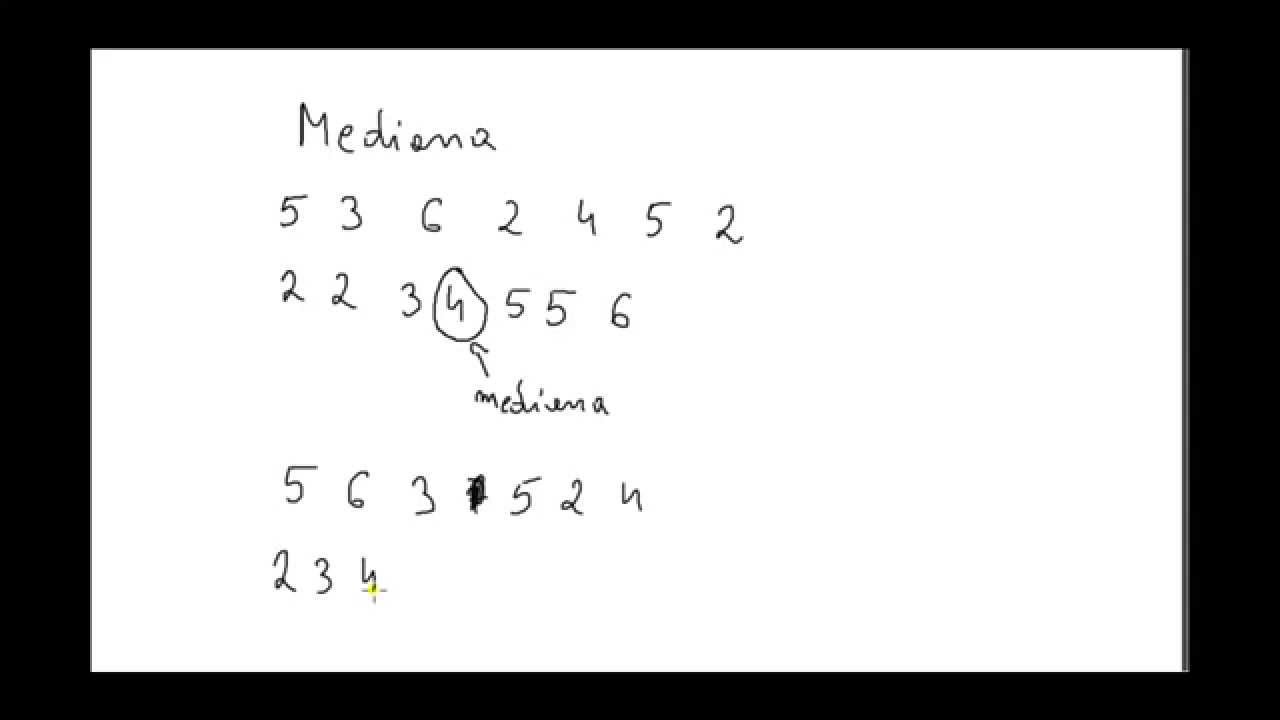 Mediana
5 3 6 2 4 5 2
2 2 3 4 5 5 6
mediana
5 6 3 5 2 4
2 3 4